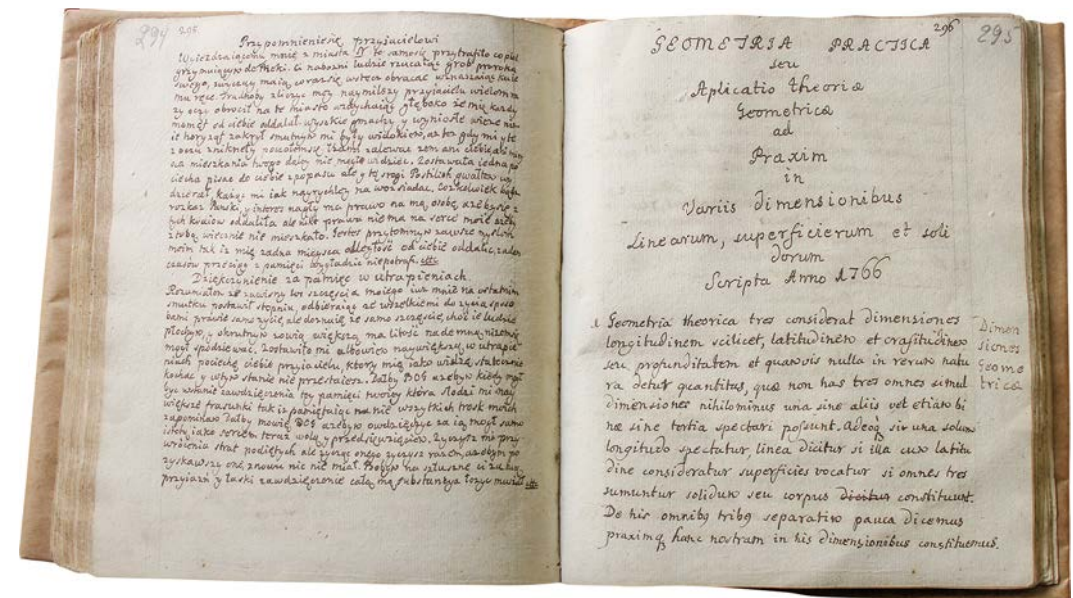 294
295
Przypomnieniesię przyiacielowi
Wyieżdzaiącemu mnie z miasta N to samosię przytrafiło co piel
grzymuiącym do Mekki. Ci nabożni ludzie rzucaiąc grob proroka
swego, zwyczay maią coraz się wstecz obracać wznaszaiąc ku nie
mu ręce. Trudnoby zliczyć moy naymilszy przyiacielu wielom ra
zy oczy obrocił na to miasto wzdychaiąc głęboko że mię każdy
moment od ciebie oddalał wyszkie gmachy y wyniosłe wieże nie
ie horyzont zakrył smutnym mi były widokiem, aż też gdy mi y te
z oczu zniknęły łzami zalewać żem ani ciebie ani miey
sca mieszkania twego daley nie mogłe widzieć. Zostawała iedna po
ciecha pisać do ciebie z popasu ale y tę srogi Postilion gwałtem wy
dzierał, każąc mi iak nayrychley na woz siadać. Cożkolwiek bądź
rozkaz Pański, y interes nagły ma prawo na mą osobę ażeby się z
tych kraiow oddaliła ale nikt prawa niema na serce moie ażeby
z tobą wiecznie nie mieszkało. Jesteś przytomnym zawsze myślom
moim tak iż mię żadna mieysca odległość od ciebie oddalić, żaden
czasow przeciąg z pamięci wygładzić niepotrafi. etc.
Dziękczynienie za pamięć w utrapieniach.
Rozumiałem że zawisny los szczęścia moiego iuż mnie na ostatnim
smutku postawił stopniu, odbieraiąc ze wszelkiemi do życia sposo
bami prawie samo życie, ale doznaię że samo szczęście, choć ie ludzie
płochym, y okrutnym zowią większą ma litość nademną niżemsię
mogł spodziewać. Zostawiło mi albowiem naywiększą w utrapie
niach pociechę ciebie przyiacielu, ktory mię iako widzę statecznie
kochać y w tym stanie nie przestaiesz. Dałby BOG ażebym kiedy mogł
być wstanie zawdzięczenia tey pamięci twoiey która słodzi mi nay
większe frasunki tak iż pamiętaiąc na nie wszytkich trosk moich
zapominam Dałby mowię BOG ażebym owdzięczyć za ią mogł samą
istotą iako seriem teraz wolą y przedsięwzięciem. Życzysz mi przy
wrócenia strat podiętych ale życząc onego życzysz razem, ażebym po
zyskawszy one znowu nic nie miał. Bobym na słuszne ci za twą
przyiazń y łaski zawdzięczenie całą mą substancyą łożyc musiał etc.
296
295
GEOMETRIA PRACTICA
seu
Aplicatio theoriæ
Geometricæ
ad
Praxim
in
Variis dimensionibus
Linearum, superficierum et soli
dorum
Scripta Anno 1766
1 Geometria theorica tres considerat dimensiones
longitudinem scilicet, latitudinem et crassitudinem
seu profunditatem et quamvis nulla in rerum natu
ra detur quantitus, quæ non has tres omnes simul
dimensiones nihilominus una sine aliis vel etiam bi
næ sine tertia spectari possunt. Adeoq sir una solum
longitudo spectatur, linea dicitur si illa cum latitu
dine consideratur superficies vocatur si omnes tres
sumuntur solidum seu corpus dicitur constituunt.
De his omnibq tribq separatim pauca dicemus
praximq hanc nostram in his dimensionibus constituemus.
Dimen
siones
Geome
tricæ